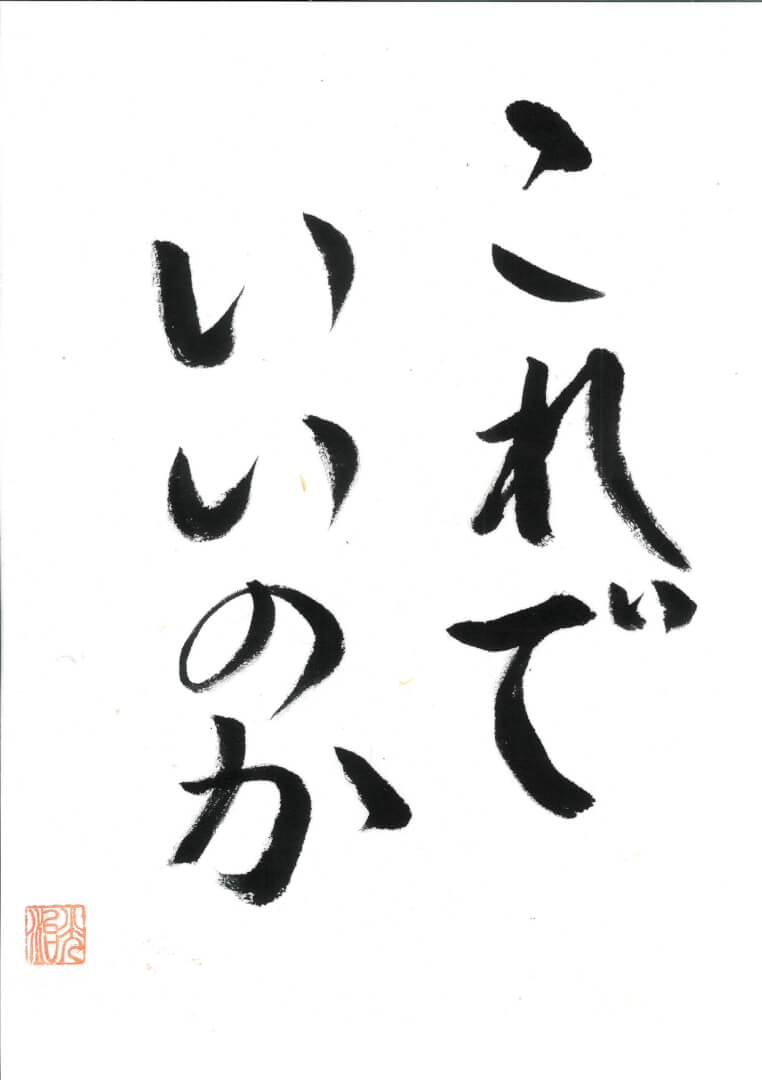 これで
いいのか